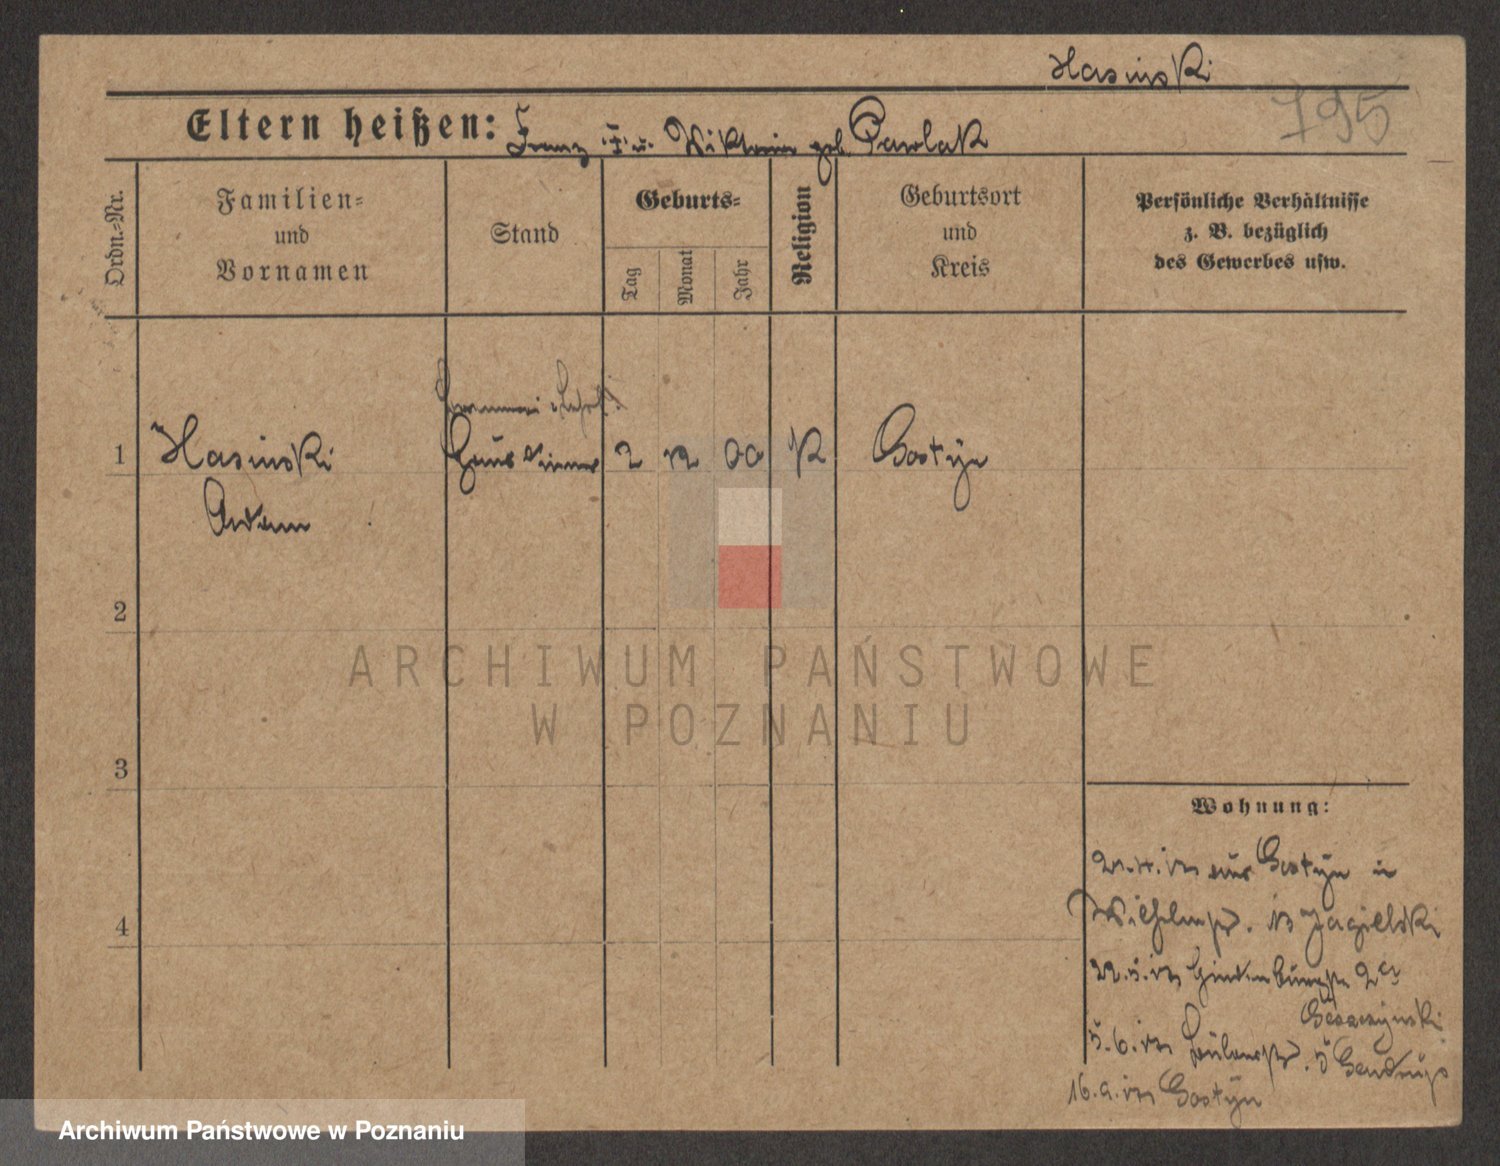 Hasinski
795
Eltern heißen: Franz † u. Wiktoria geb. Pawlak
Ordn.-Nr.
Familien-
und
Vornamen
Stand
Geburts-
Tag
Monat
Jahr
Religion
Geburtsort
und
Kreis
Persönliche Verhältnisse
z. B. bezüglich
des Gewerbes usw.
1 Hasinski 2 12 00 K Gostyn
Adam
2
ARCHIWUM PAŃSTWOWE
W POZNANIU
3
4
Wohnung:
aus Gostyn in
Wilhelmstr. 13 Jagielski
2a
Gostyn
Archiwum Państwowe w Poznaniu